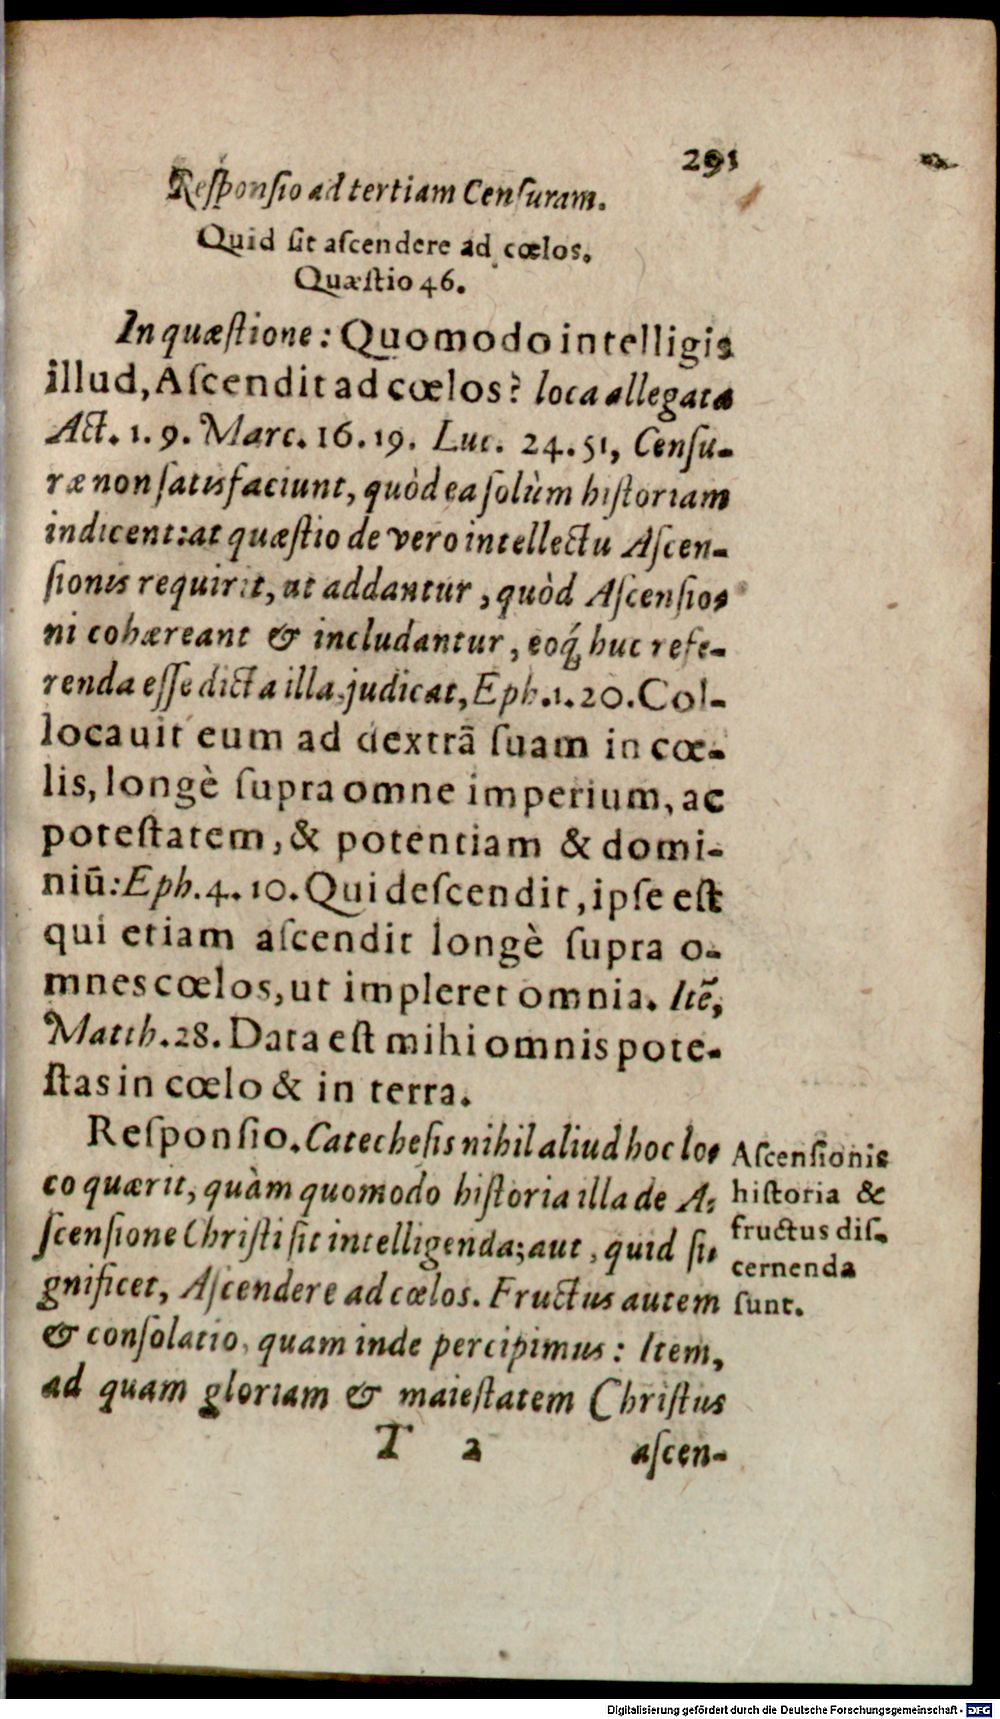 291
Reſponſio ad tertiam Cenſuram.
Quid ſit aſcendere ad cœlos.
Quæſtio 46.
In quæſtione: Quomodo intelligis
illud, Aſcendit ad cœlos? loca allegata
Act. 1. 9. Marc. 16. 19. Luc. 24. 51, Cenſu-
ræ non ſatisfaciunt, quòd ea ſolùm hiſtoriam
indicent: at quæſtio de vero intellectu Aſcen-
ſionis requirit, ut addantur, quòd Aſcenſio-
ni cohæreant & includantur, eoq́ huc refe-
renda eſſe dicta illa judicat, Eph. 1. 20. Col-
locavit eum ad dextrã ſuam in cœ-
lis, longè ſupra omne imperium, ac
poteſtatem, & potentiam & domi-
niũ: Eph. 4. 10. Qui deſcendit, ipſe eſt
qui etiam aſcendit longè ſupra o-
mnes cœlos, ut impleret omnia. Itẽ,
Matth. 28. Data eſt mihi omnis pote-
ſtas in cœlo & in terra.
Reſponſio. Catecheſis nihil aliud hoc lo-
co quærit, quàm quomodo hiſtoria illa de A-
ſcenſione Chriſti ſit intelligenda; aut, quid ſi-
gnificet, Aſcendere ad cœlos. Fructus autem
& conſolatio, quam inde percipimus: Item,
ad quam gloriam & maieſtatem Chriſtus
Aſcenſionis
hiſtoria &
fructus diſ-
cernenda
ſunt.
T 2 aſcen-
Digitalisierung gefördert durch die Deutsche Forschungsgemeinschaft - DFG